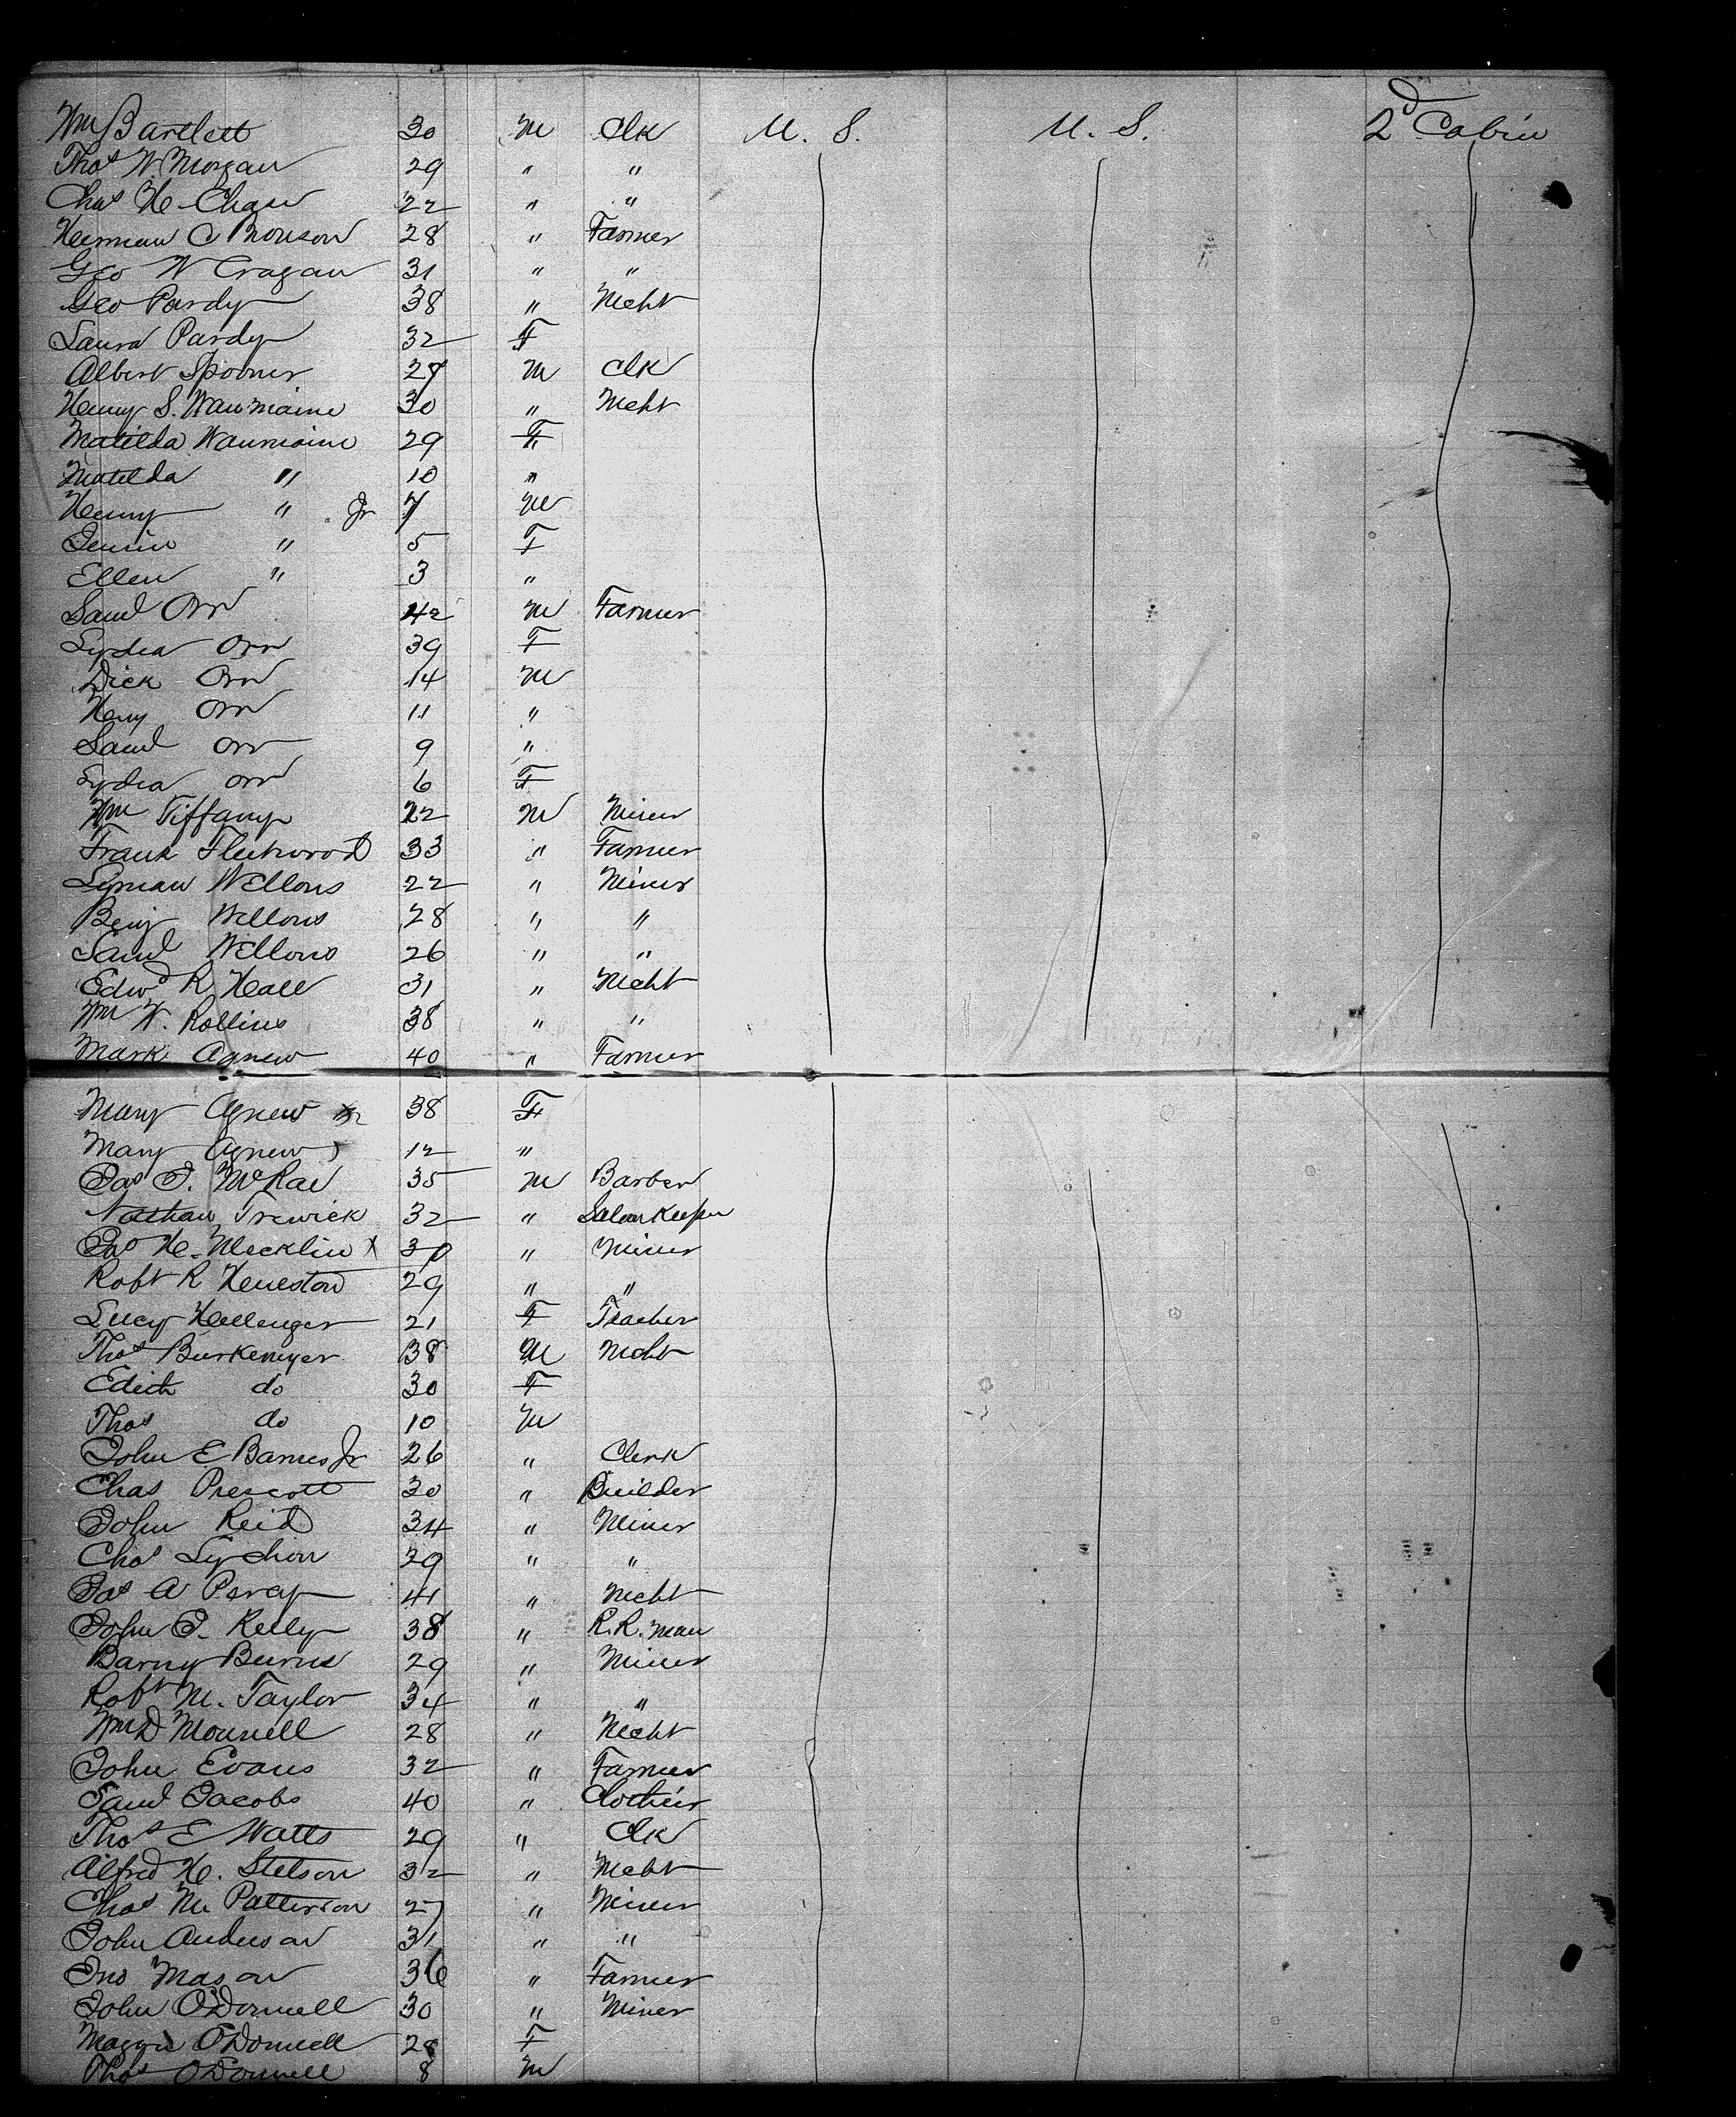 Wm Bartlett 30 M Clk U. S. U. S. 2d Cabin
Thos W. Morgan 29 " "
Chas H. Chase 22 " "
Herman C Bronson 28 " Farmer
Geo W Cragan 31 " "
Geo Pardy 38 " Mcht
Laura Pardy 32 F
Albert Spooner 27 M Clk
Henry S. Wanmaine 30 " Mcht
Matilda Wanmaine 29 F
Matilda " 10 "
Henry " Jr 7 M
Jennie " 5 F
Ellen " 3 "
Saml Orr 42 M Farmer
Lydia Orr 39 F
Dick Orr 14 M
Henry Orr 11 "
Saml Orr 9 "
Lydia Orr 6 F
Wm Tiffany 22 M Miner
Frank Fleetwood 33 " Farmer
Lyman Wellons 22 " Miner
Benj Wellons 28 " "
Saml Wellons 26 " "
Edwd R Hall 31 " Mcht
Wm W. Rollins 38 " "
Mark Agnew 40 " Farmer
Mary Agnew 38 F
Mary Agnew 12 "
Jas J. McRae 35 M Barber
Nathan Trewick 32 " Saloon Keeper
Jas H. Mecklin x 30 " Miner
Robt R Heneston 29 " "
Lucy Hellenger 21 F Teacher
Thos Burkemyer 38 M Mcht
Edith do 30 F
Thos do 10 M
John E Barnes Jr 26 " Clerk
Chas Prescott 30 " Builder
John Reid 34 " Miner
Chas 29 " "
Jas A Percy 41 " Mcht
John J. Kelly 38 " R.R. man
Barny Burns 29 " Miner
Robt M. Taylor 34 " "
Wm D Monnell 28 " Mcht
John Evans 32 " Farmer
Saml Jacobs 40 " Clothier
Thos E Watts 29 " Clk
Alfred H. Stetson 32 " Mcht
Chas M Patterson 27 " Miner
John Anderson 31 " "
Jno Mason 36 " Farmer
John O'Donnell 30 " Miner
Maggie O'Donnell 28 F
Thos O'Donnell 8 M